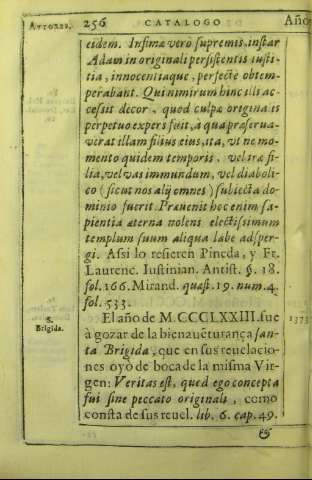 Autores. 256 CATALOGO Año
eidem. Infimæ vero supremis, instar
Adam in originali persistentis iusti-
tia, innocentiaque, perfecte obtem-
perabant. Qui nimirum hinc illi ac-
cessit decor, quod culpæ originalis
perpetuo expers fuit, à qua præserua-
verat illam filius eius, ita, vt ne mo-
mento quidem temporis, vel iræ fi-
lia, vel vas immundum, vel diaboli-
co (sicut nos alij omnes) subiecta do-
minio fuerit. Præuenit hoc enim sa-
pientia æterna nolens electissimum
templum suum aliqua labe adsper-
gi. Assi lo refieren Pineda, y Fr.
Laurenc. Iustinian. Antist. §. 18.
fol. 166. Mirand. quæst. 19. num. 4.
fol. 533.
El año de M.CCCLXXIII. fue
à gozar de la bienauēturança san-
ta Brigida, que en sus reuelacio-
nes oyò de boca de la misma Vir-
gen: Veritas est, quod ego concepta
fui sine peccato originali, como
cōsta de sus reuel. lib. 6. cap. 49.
S.
Brigida.
1373